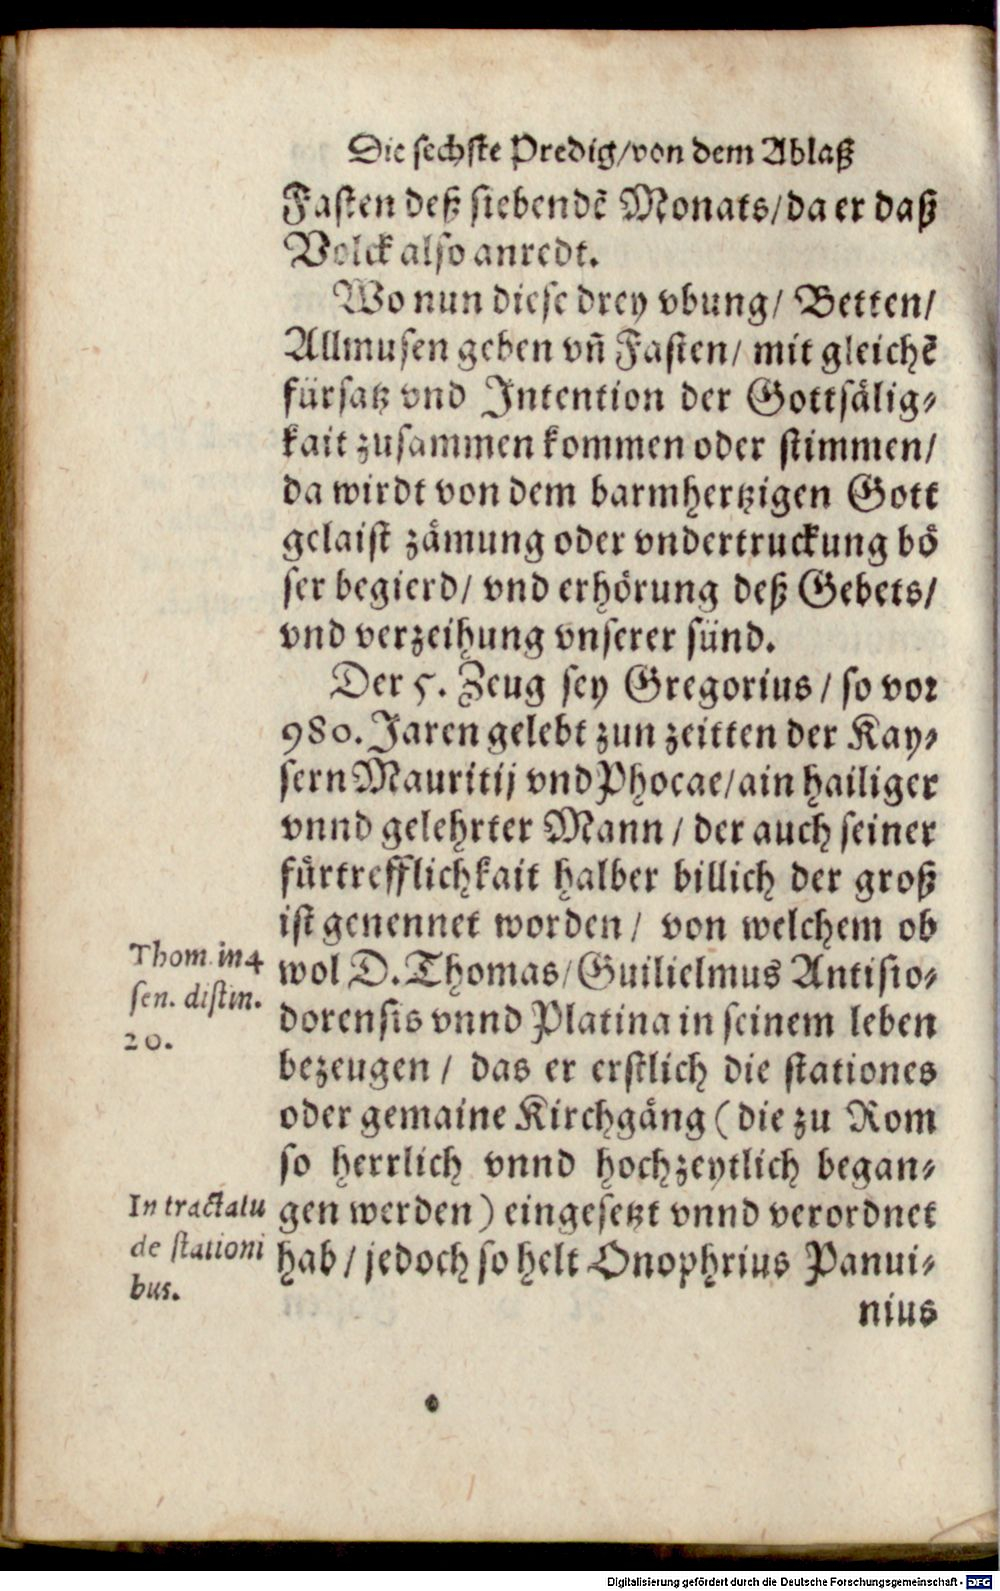 Die sechste Predig/von dem Ablaß
Fasten deß siebendē Monats/da er daß
Volck also anredt.
Wo nun diese drey vbung/ Betten/
Allmusen geben vñ Fasten/ mit gleichē
fürsatz vnd Intention der Gottsälig⸗
kait zusammen kommen oder stimmen/
da wirdt von dem barmhertzigen Gott
gelaist zämung oder vndertruckung bö
ser begierd/ vnd erhörung deß Gebets/
vnd verzeihung vnserer sünd.
Der 5. Zeug sey Gregorius/ so vor
980. Jaren gelebt zun zeitten der Kay⸗
sern Mauritij vnd Phocae/ain hailiger
vnnd gelehrter Mann/ der auch seiner
fürtrefflichkait halber billich der groß
ist genennet worden/ von welchem ob
Thom. in 4
sen. distin.
20.
wol D. Thomas/Guilielmus Antisio⸗
dorensis vnnd Platina in seinem leben
bezeugen/ das er erstlich die stationes
oder gemaine Kirchgäng (die zu Rom
so herrlich vnnd hochzeytlich began⸗
In tractatu
de stationi
bus.
gen werden) eingesetzt vnnd verordnet
hab/ jedoch so helt Onophrius Panui⸗
nius
Digitalisierung gefördert durch die Deutsche Forschungsgemeinschaft - DFG